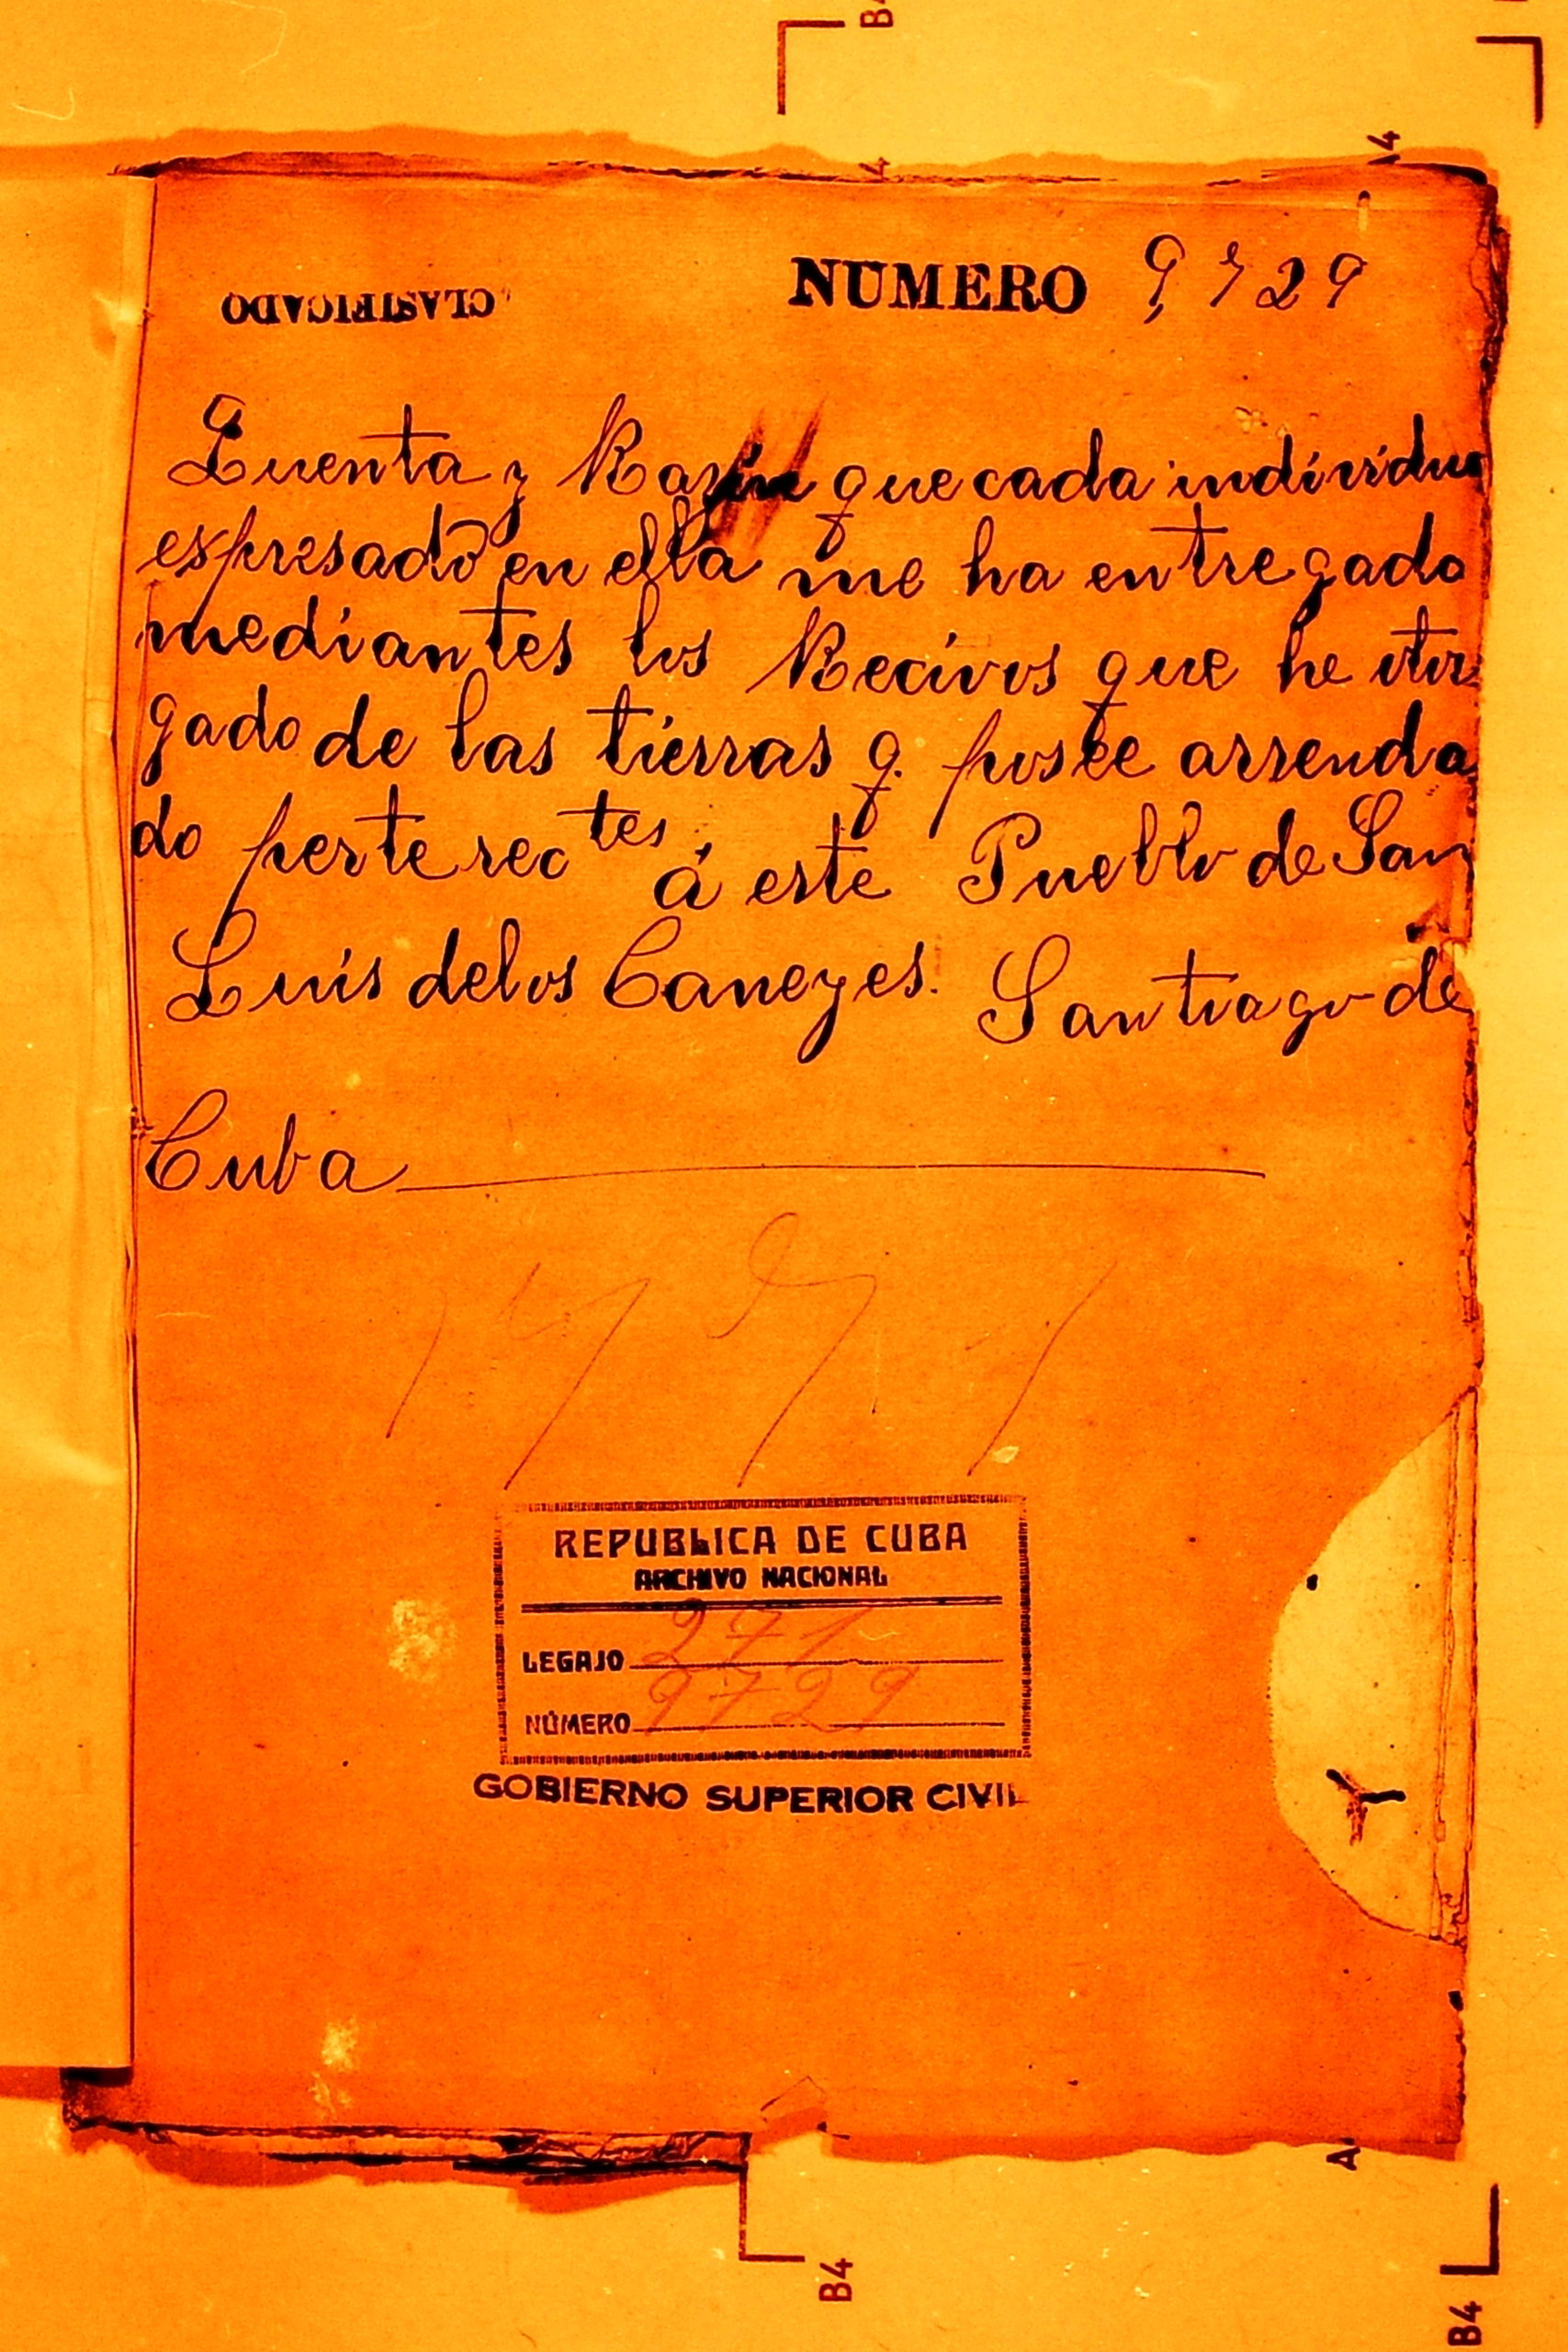 B4
A4
CLASIFICADO
NUMERO 9,729
Cuenta y Razon que cada individuo
espresado en ella me ha entregado
mediantes los Recivos que he otor
gado de las tierras q. posee arrenda
do á este Pueblo de San
Luis de los Caneyes. Santiago de
Cuba
REPUBLICA DE CUBA
ARCHIVO NACIONAL
LEGAJO 271
NÚMERO 9729
GOBIERNO SUPERIOR CIVIL
B4
B4